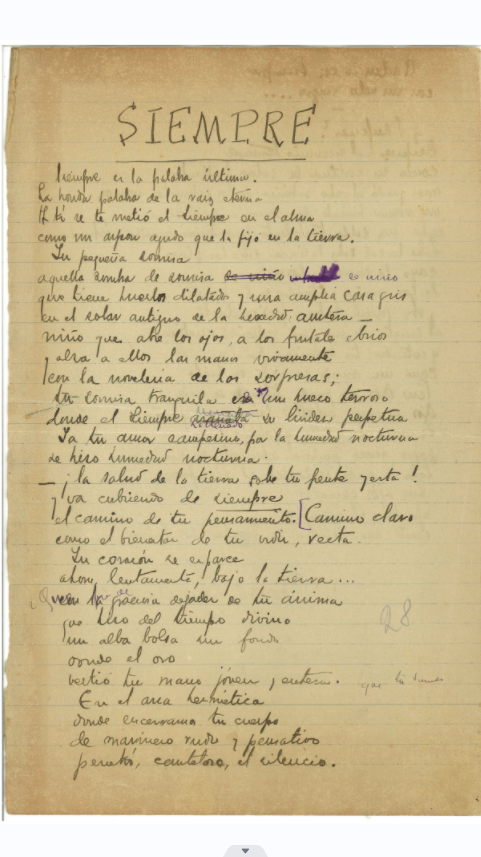 SIEMPRE
Siempre es la palabra última.
La honda palabra de la raíz eterna
A ti se te metió el siempre en el alma
como un arpón agudo que la fijó en la tierra.
Tu pequeña sonrisa
aquella sonrisa de niño
que tiene huertos dilatados y una amplia casa gris
en el solar antiguo de la heredad austera —
niño que abre los ojos, a los frutales
y alza a ellos las manos vivamente
con la novelería de las sorpresas;
tu sonrisa tranquila es un hueco terroso
donde el siempre su linde perpetua
Ya tu amor campesino, por la humedad nocturna
se hizo humedad nocturna.
— ¡la salud de la tierra sobre tu frente yerta!
y va cubriendo de siempre
el camino de tu pensamiento. [Camino claro
como el bienestar de tu vida, recta.
Tu corazón se esparce
ahora, lentamente, bajo la tierra...
de tu ánima
que hizo del tiempo divino
un alba bolsa sin fondo
donde el oro
vertió tu mano joven y entera.
que tú
28
En el arca hermética
donde encerramos tu cuerpo
de marinero rudo y pensativo
penetró, cauteloso, el silencio.